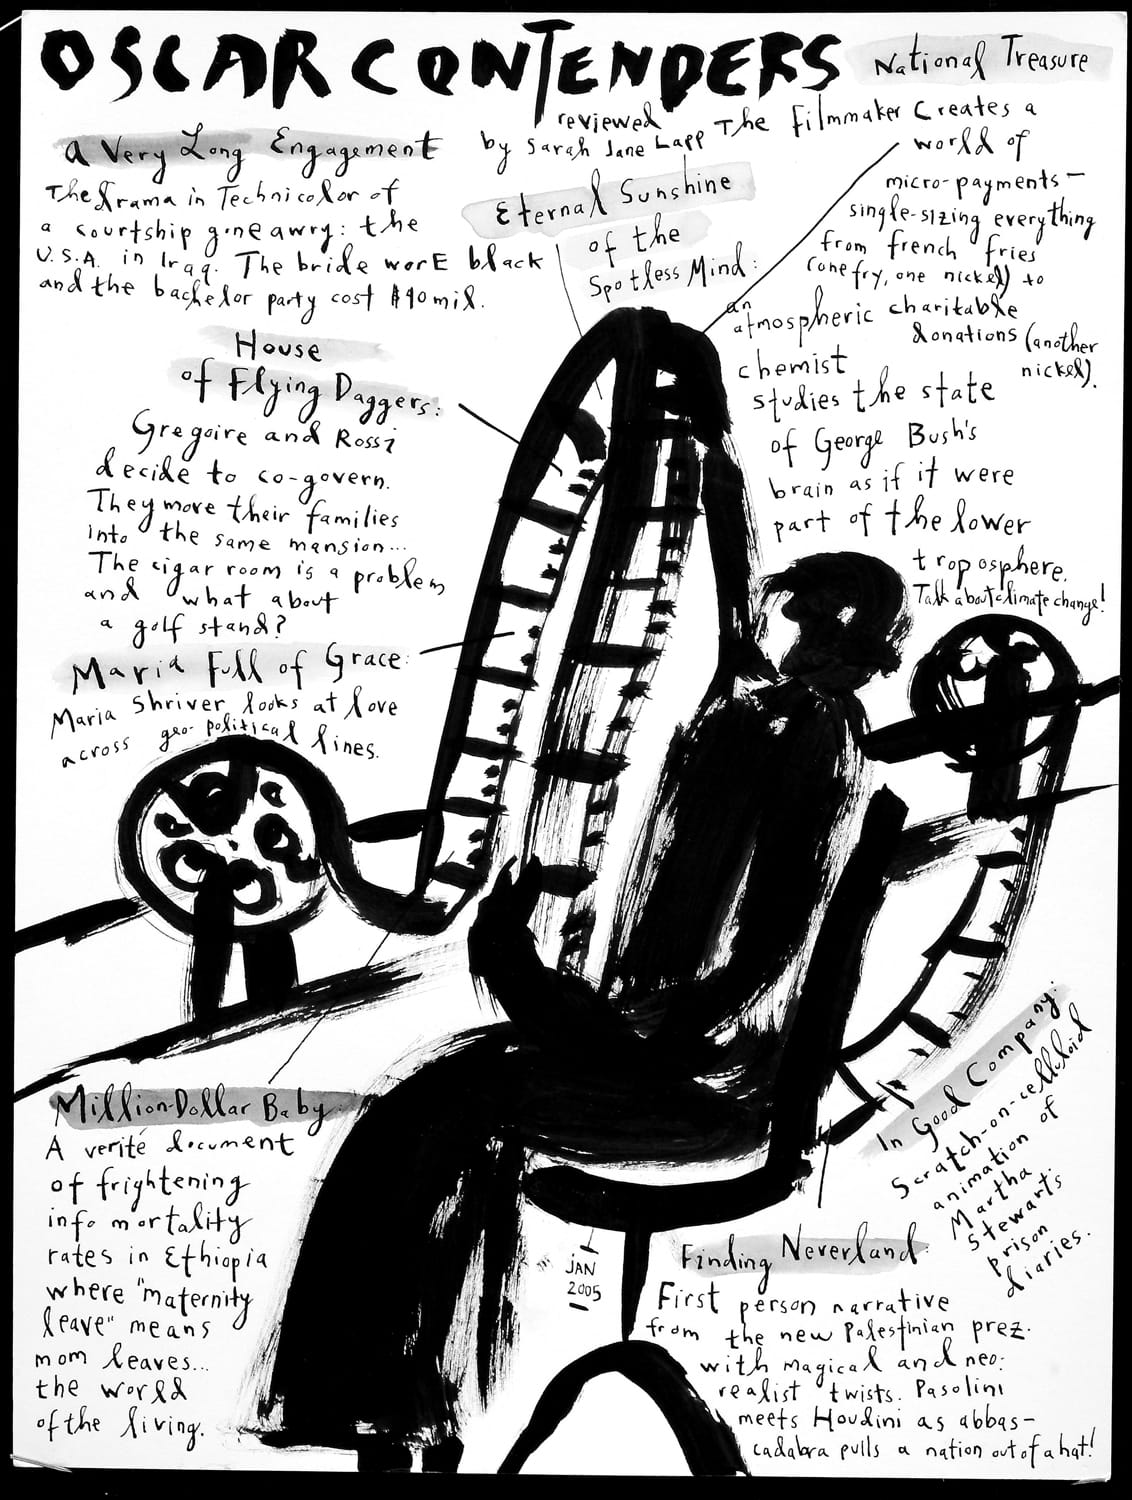 OSCAR CONTENDERS
reviewed
by Sarah Jane Lapp
A Very Long Engagement
The drama in Technicolor of
a courtship gone awry: the
U.S.A. in Iraq. The bride worE black
and the bachelor party cost $40 mil.
House
of Flying Daggers:
Gregoire and Rossi
decide to co-govern.
They move their families
into the same mansion...
The cigar room is a problem
and what about
a golf stand?
Maria Full of Grace:
Maria Shriver looks at love
across geo-political lines.
Eternal Sunshine
of the
Spotless Mind:
an
atmospheric
chemist
studies the state
of George Bush's
brain as if it were
part of the lower
troposphere.
Talk about climate change!
National Treasure
The filmmaker creates a
world of
micro-payments—
single-sizing everything
from french fries
(one fry, one nickel) to
charitable
donations (another
nickel).
Million-Dollar Baby:
A verité document
of frightening
info mortality
rates in Ethiopia
where "maternity
leave" means
mom leaves...
the world
of the living.
JAN
2005
In Good Company:
Scratch-on-celluloid
animation of
Martha
Stewart's
prison
diaries.
Finding Neverland:
First person narrative
from the new Palestinian prez.
with magical and neo:
realist twists. Pasolini
meets Houdini as abbas-
cadabra pulls a nation out of a hat!